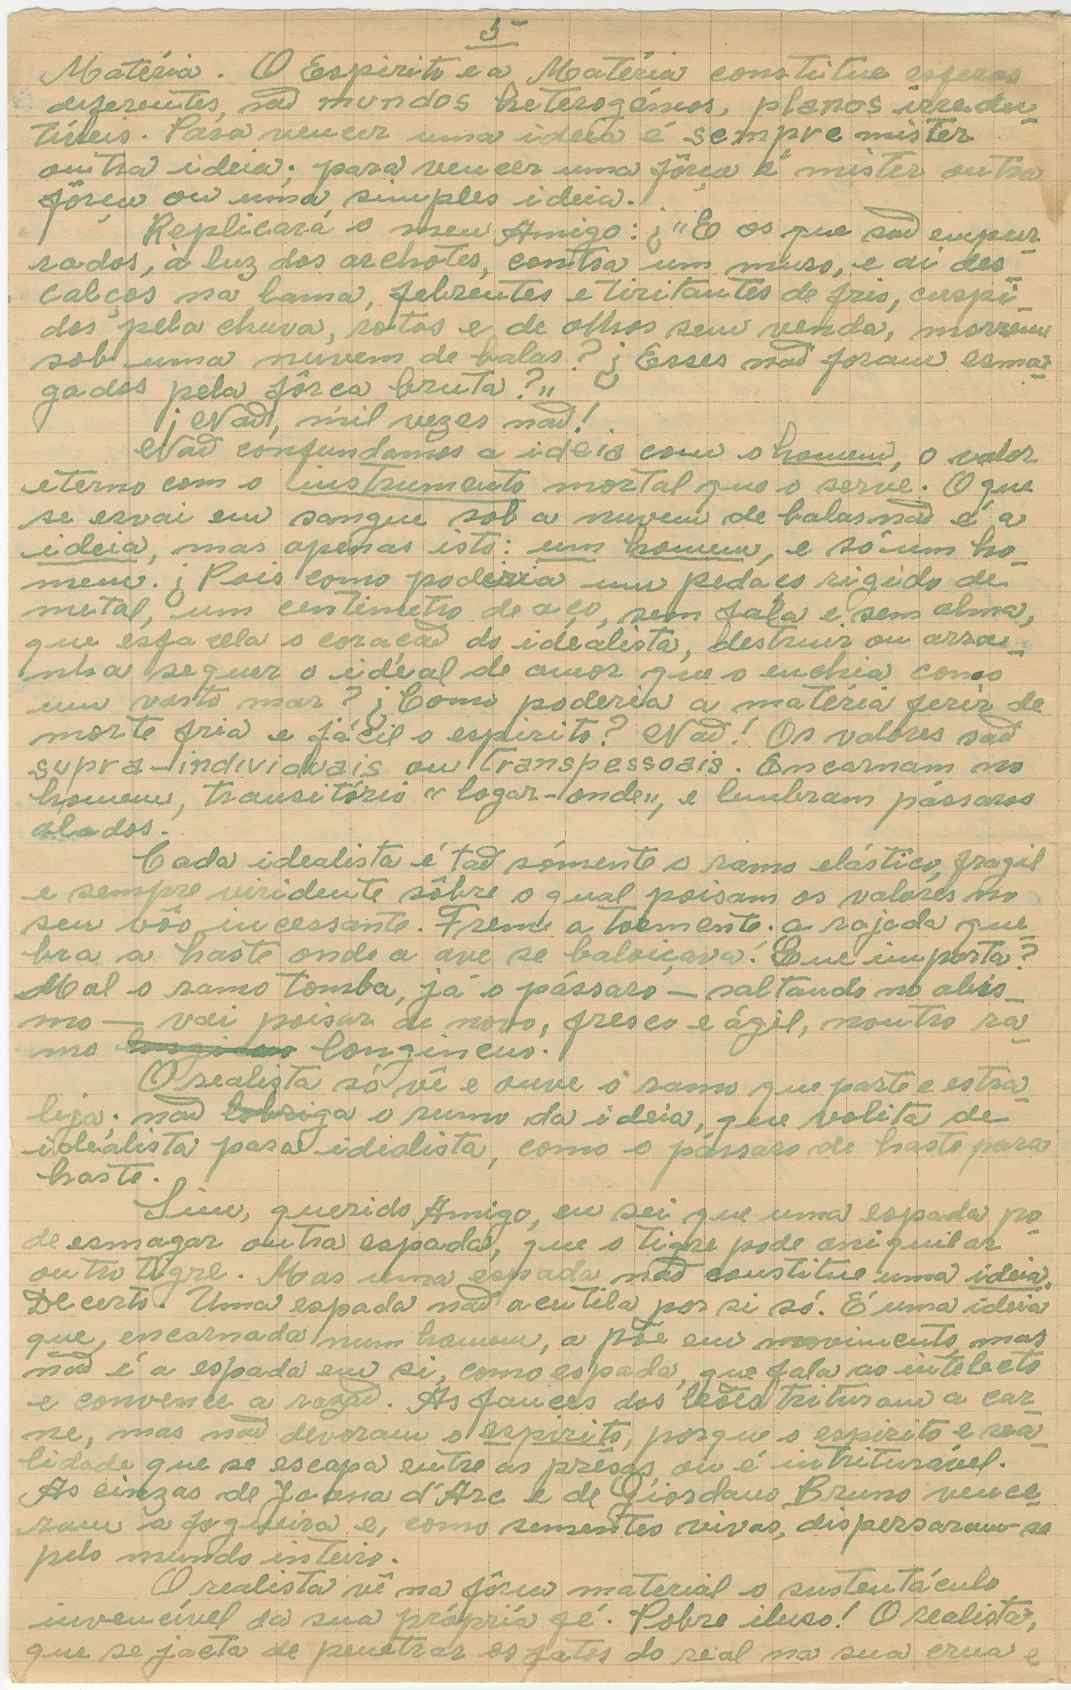 5
Matéria. O Espirito e a Matéria constitue esferas
diferentes, são mundos heterogéneos, planos irredu-
tíveis. Para vencer uma ideia é sempre mister
outra ideia; para vencer uma fôrça é mister outra
fôrça ou uma simples ideia.
Replicará o meu Amigo: ¿"E os que são empur-
rados, à luz dos archotes, contra um muro, e aí des-
calços na lama, febrentes e tiritantes de frio, cuspi-
dos pela chuva, rotos e de olhos sem venda, morrem
sob uma nuvem de balas? ¿Esses não foram esma-
gados pela fôrça bruta?"
¡Não, mil vezes não!
Não confundamos a ideia com o homem, o valor
eterno com o instrumento mortal que o serve. O que
se esvai em sangue sob a nuvem de balas não é a
ideia, mas apenas isto: um homem, e só um ho-
mem. ¿Pois como poderia um pedaço rigido de
metal, um centimetro de aço, sem fala e sem alma,
que esfacela o coração do idealista, destruir ou arra-
nha sequer o ideal de amor que o enchia como
um vasto mar? ¿Como poderia a matéria ferir de
morte fria e fácil o espirito? Não! Os valores são
supra-individuais ou transpessoais. Encarnam no
homem, transitório "logar-onde", e lembram pássaros
alados.
Cada idealista é tão sómente o ramo elástico, fragil
e sempre viridente sôbre o qual poisam os valores no
seu vôo incessante. Freme a tormenta: a rajada que-
bra a haste onde a ave se baloiçava! Que importa?
Mal o ramo tomba, já o pássaro — saltando no abis-
mo — vai poisar de novo, fresco e ágil, noutro ra-
mo longincuo.
O realista só vê e ouve o ramo que parte e estra-
leja; não lobriga o rumo da ideia, que volita de
idealista para idialista, como o pássaro de haste para
haste.
Sim, querido Amigo, eu sei que uma espada po-
de esmagar outra espada, que o tigre pode aniquilar
outro tigre. Mas uma espada não constitue uma ideia.
Decerto. Uma espada não acutila por si só. É uma ideia
que, encarnada num homem, a põe em movimento, mas
não é a espada em si, como espada, que fala ao intelecto
e convence a razão. As fauces dos leões trituram a car-
ne, mas não devoram o espirito, porque o espirito e rea-
lidade que se escapa entre as prêsas, ou é intriturável.
As cinzas de Joana d'Arc e de Giordano Bruno vence-
ram a fogueira e, como sementes vivas, dispersaram-se
pelo mundo inteiro.
O realista vê na fôrça material o sustentáculo
invencível da sua própria fé. Pobre iluso! O realista,
que se jacta de penetrar os fatos do real na sua crua e